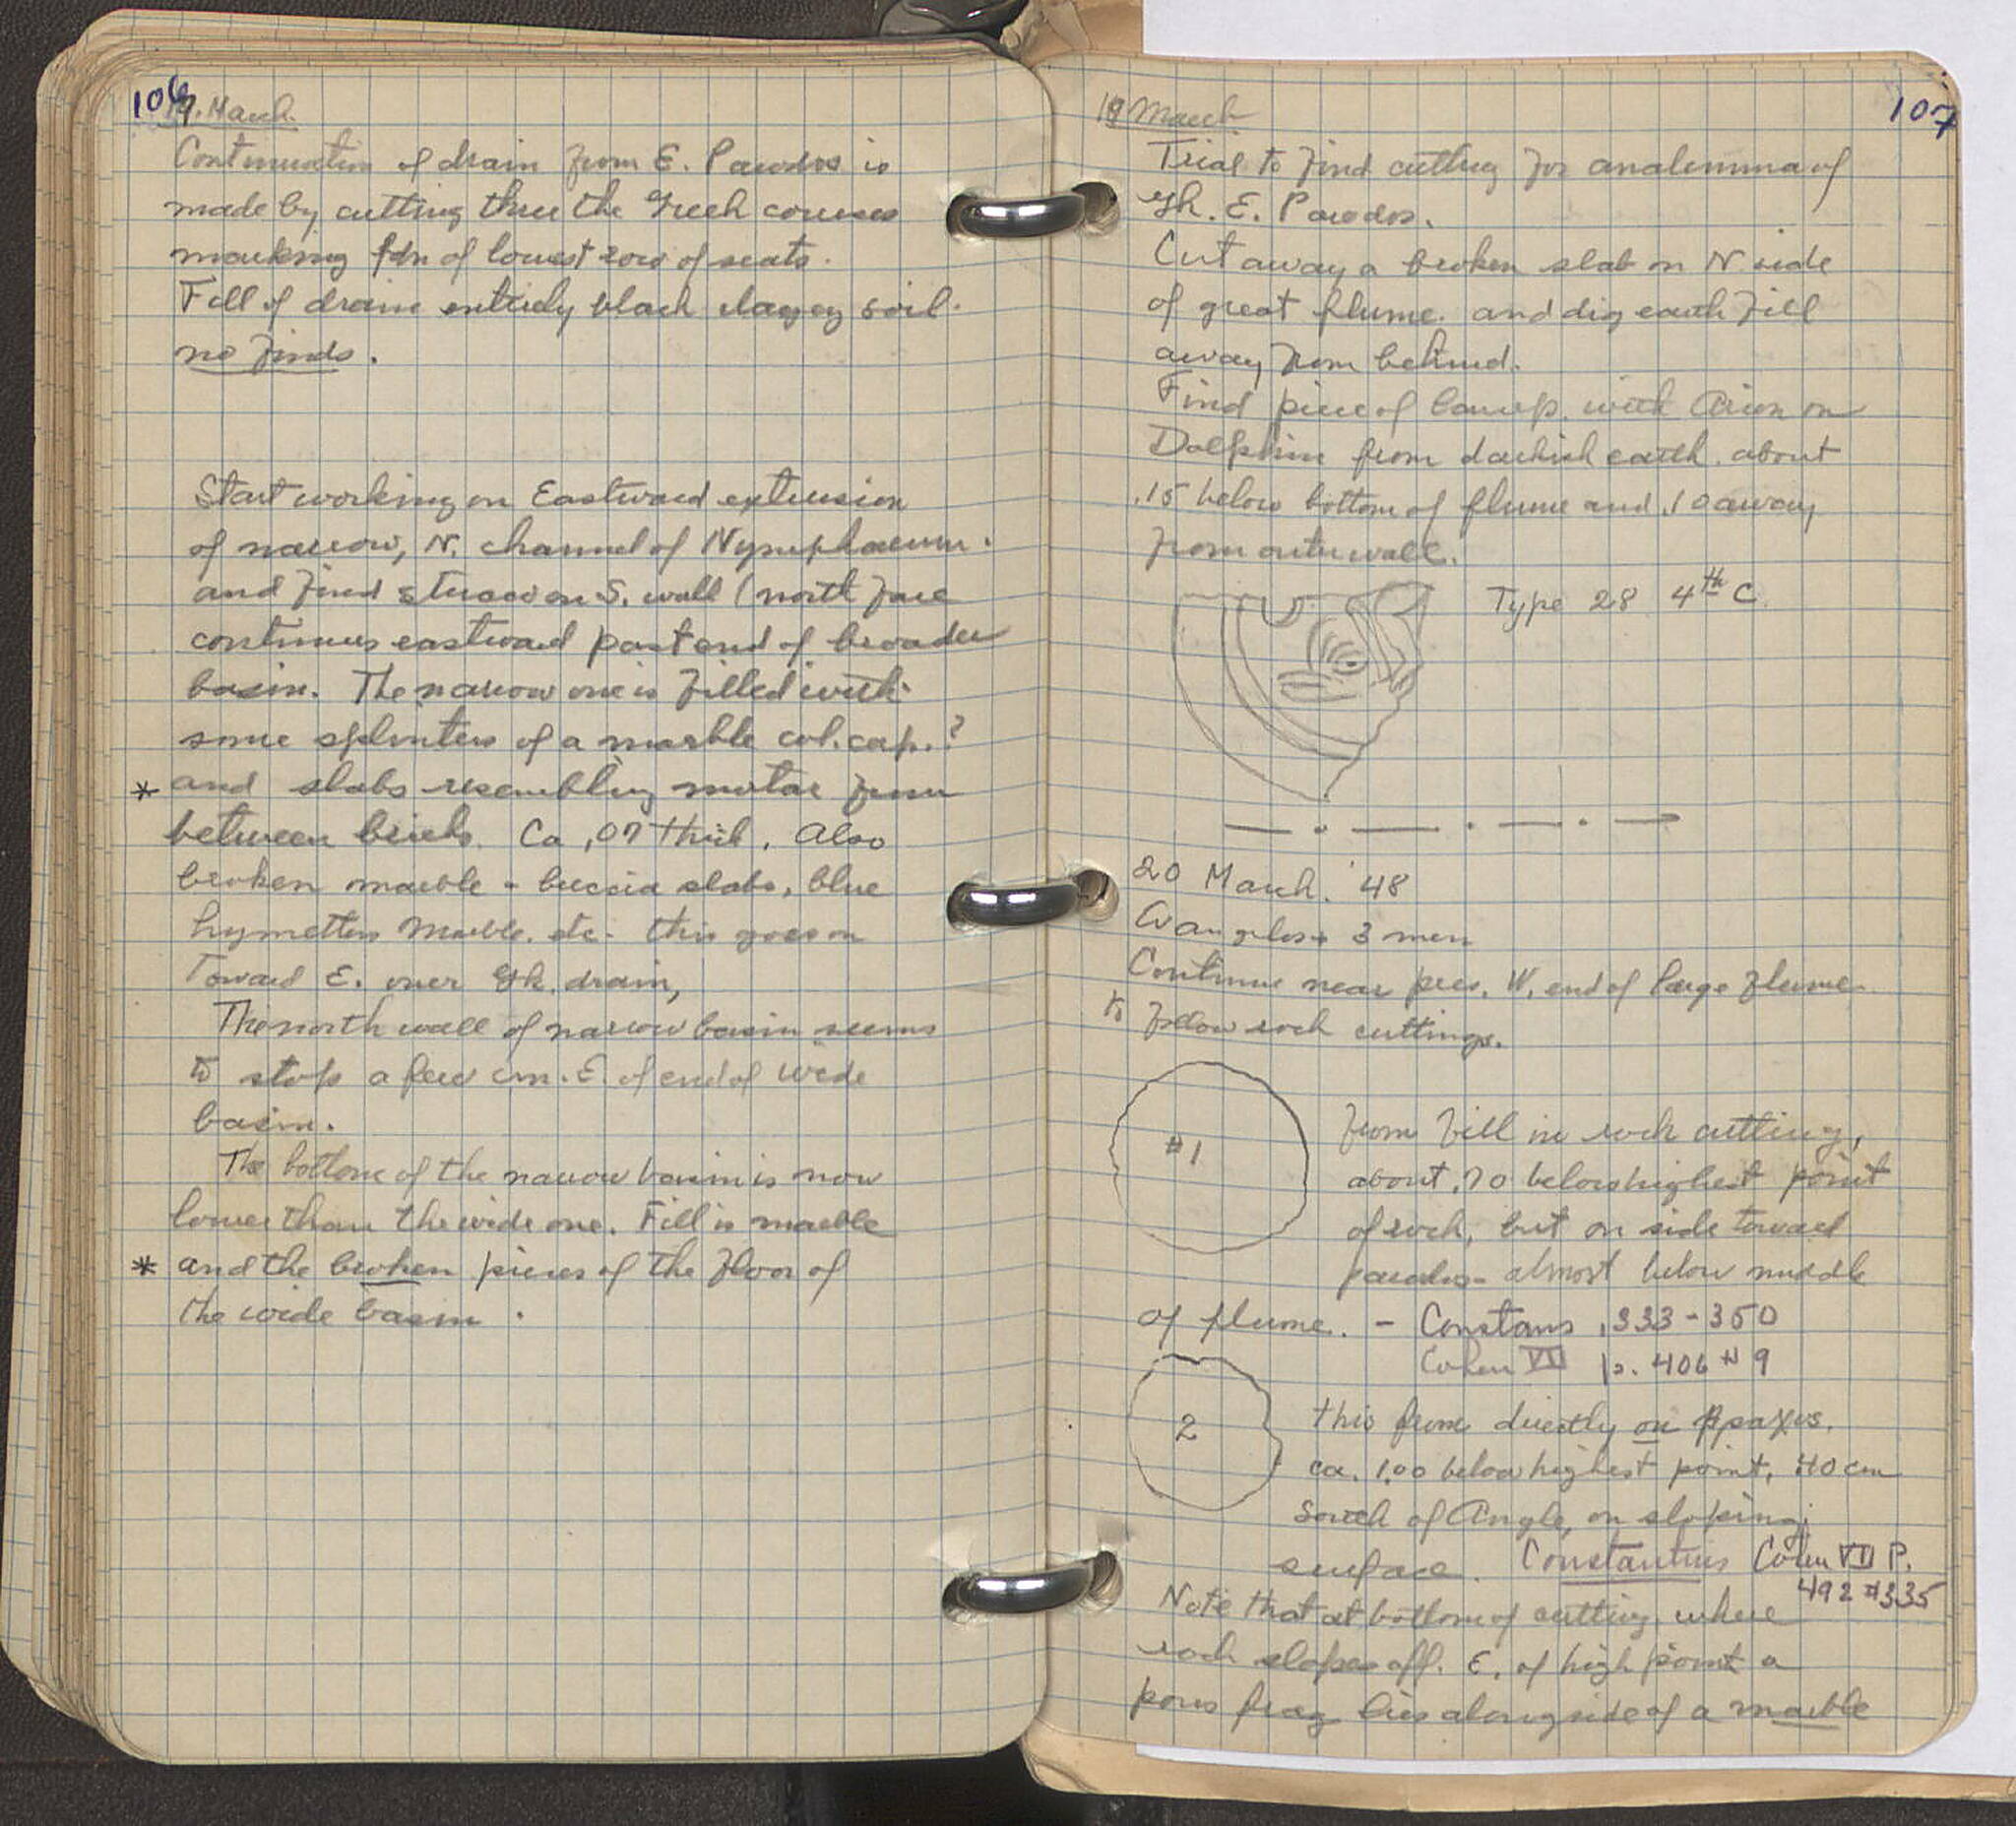 106
19. March.
Continuation of drain from E. Parodos is
made by cutting thru the Greek courses
marking fdn of lowest row of seats.
Fill of drain entirely black clayey soil.
no finds.
Start working on Eastward extension
of narrow, N. channel of Nymphaeum.
and find stucco on S. wall (north face
continues eastward past end of broader
basin. The narrow one is filled with
some splinters of a marble col. cap.?
* and slabs resembling mortar from
between bricks. Ca ,07 thick. Also
broken marble - breccia slabs, blue
hymettos marble. etc. this goes on
Toward E. over Gk. drain,
The north wall of narrow basin seems
to stop a few cm. E. of end of wide
basin.
The bottom of the narrow basin is now
lower than the wide one. Fill is marble
* and the broken pieces of the floor of
the wide basin.
107
19 March
Trial to find cutting for analemma of
Gk. E. Parodos.
Cut away a broken slab on N side
of great flume. and dig earth fill
away from behind.
Find piece of lamp. with Arion on
Dolphin from darkish earth. about
.15 below bottom of flume and .10 away
from outer wall.
Type 28 4th C.
20 March. '48
Evangelos + 3 men
Continue near pres. W. end of large flume
to follow rock cuttings.
#1
from fill in rock cutting,
about .70 below highest point
of rock, but on side toward
parodos - almost below middle
of flume. - Constans ,333-350
Cohen VII p. 406 # 9
2
this from directly on
ca. 1.00 below highest point, 40 cm
South of Angle, on sloping
surface. Constantius Cohen VII P.
492 #335
Note that at bottom of cutting, where
rock slopes off. E. of high point a
poros frag lies alongside of a marble